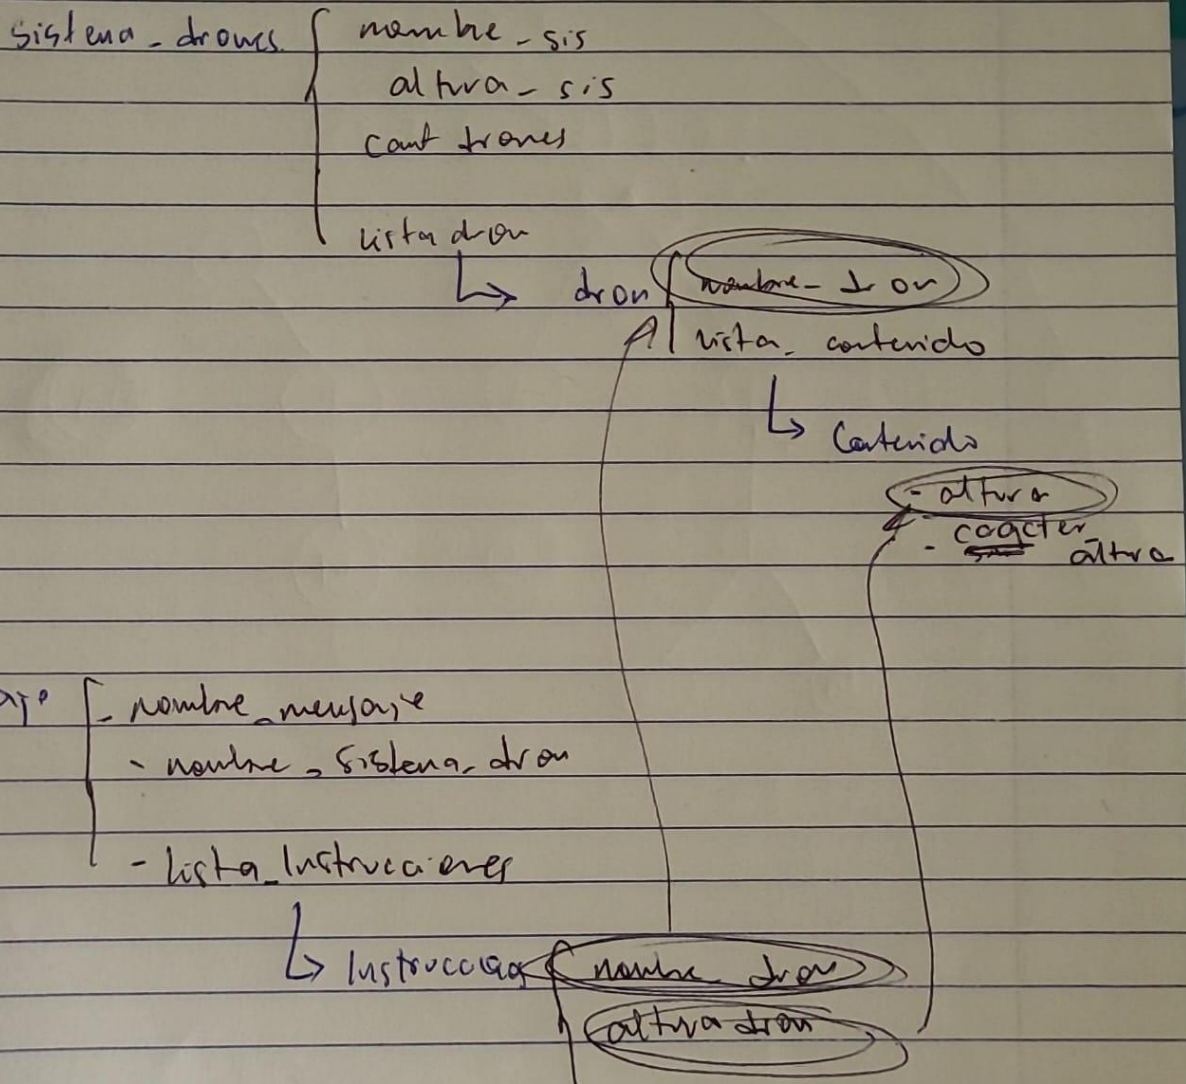 sistema_drones
nombre_sis
altura_sis
cant drones
lista dron
dron
nombre_dron
lista_contenido
Contenido
- altura
- altura
- nombre_mensaje
- nombre_sistema_dron
- lista_Instrucciones
nombre dron
altura dron